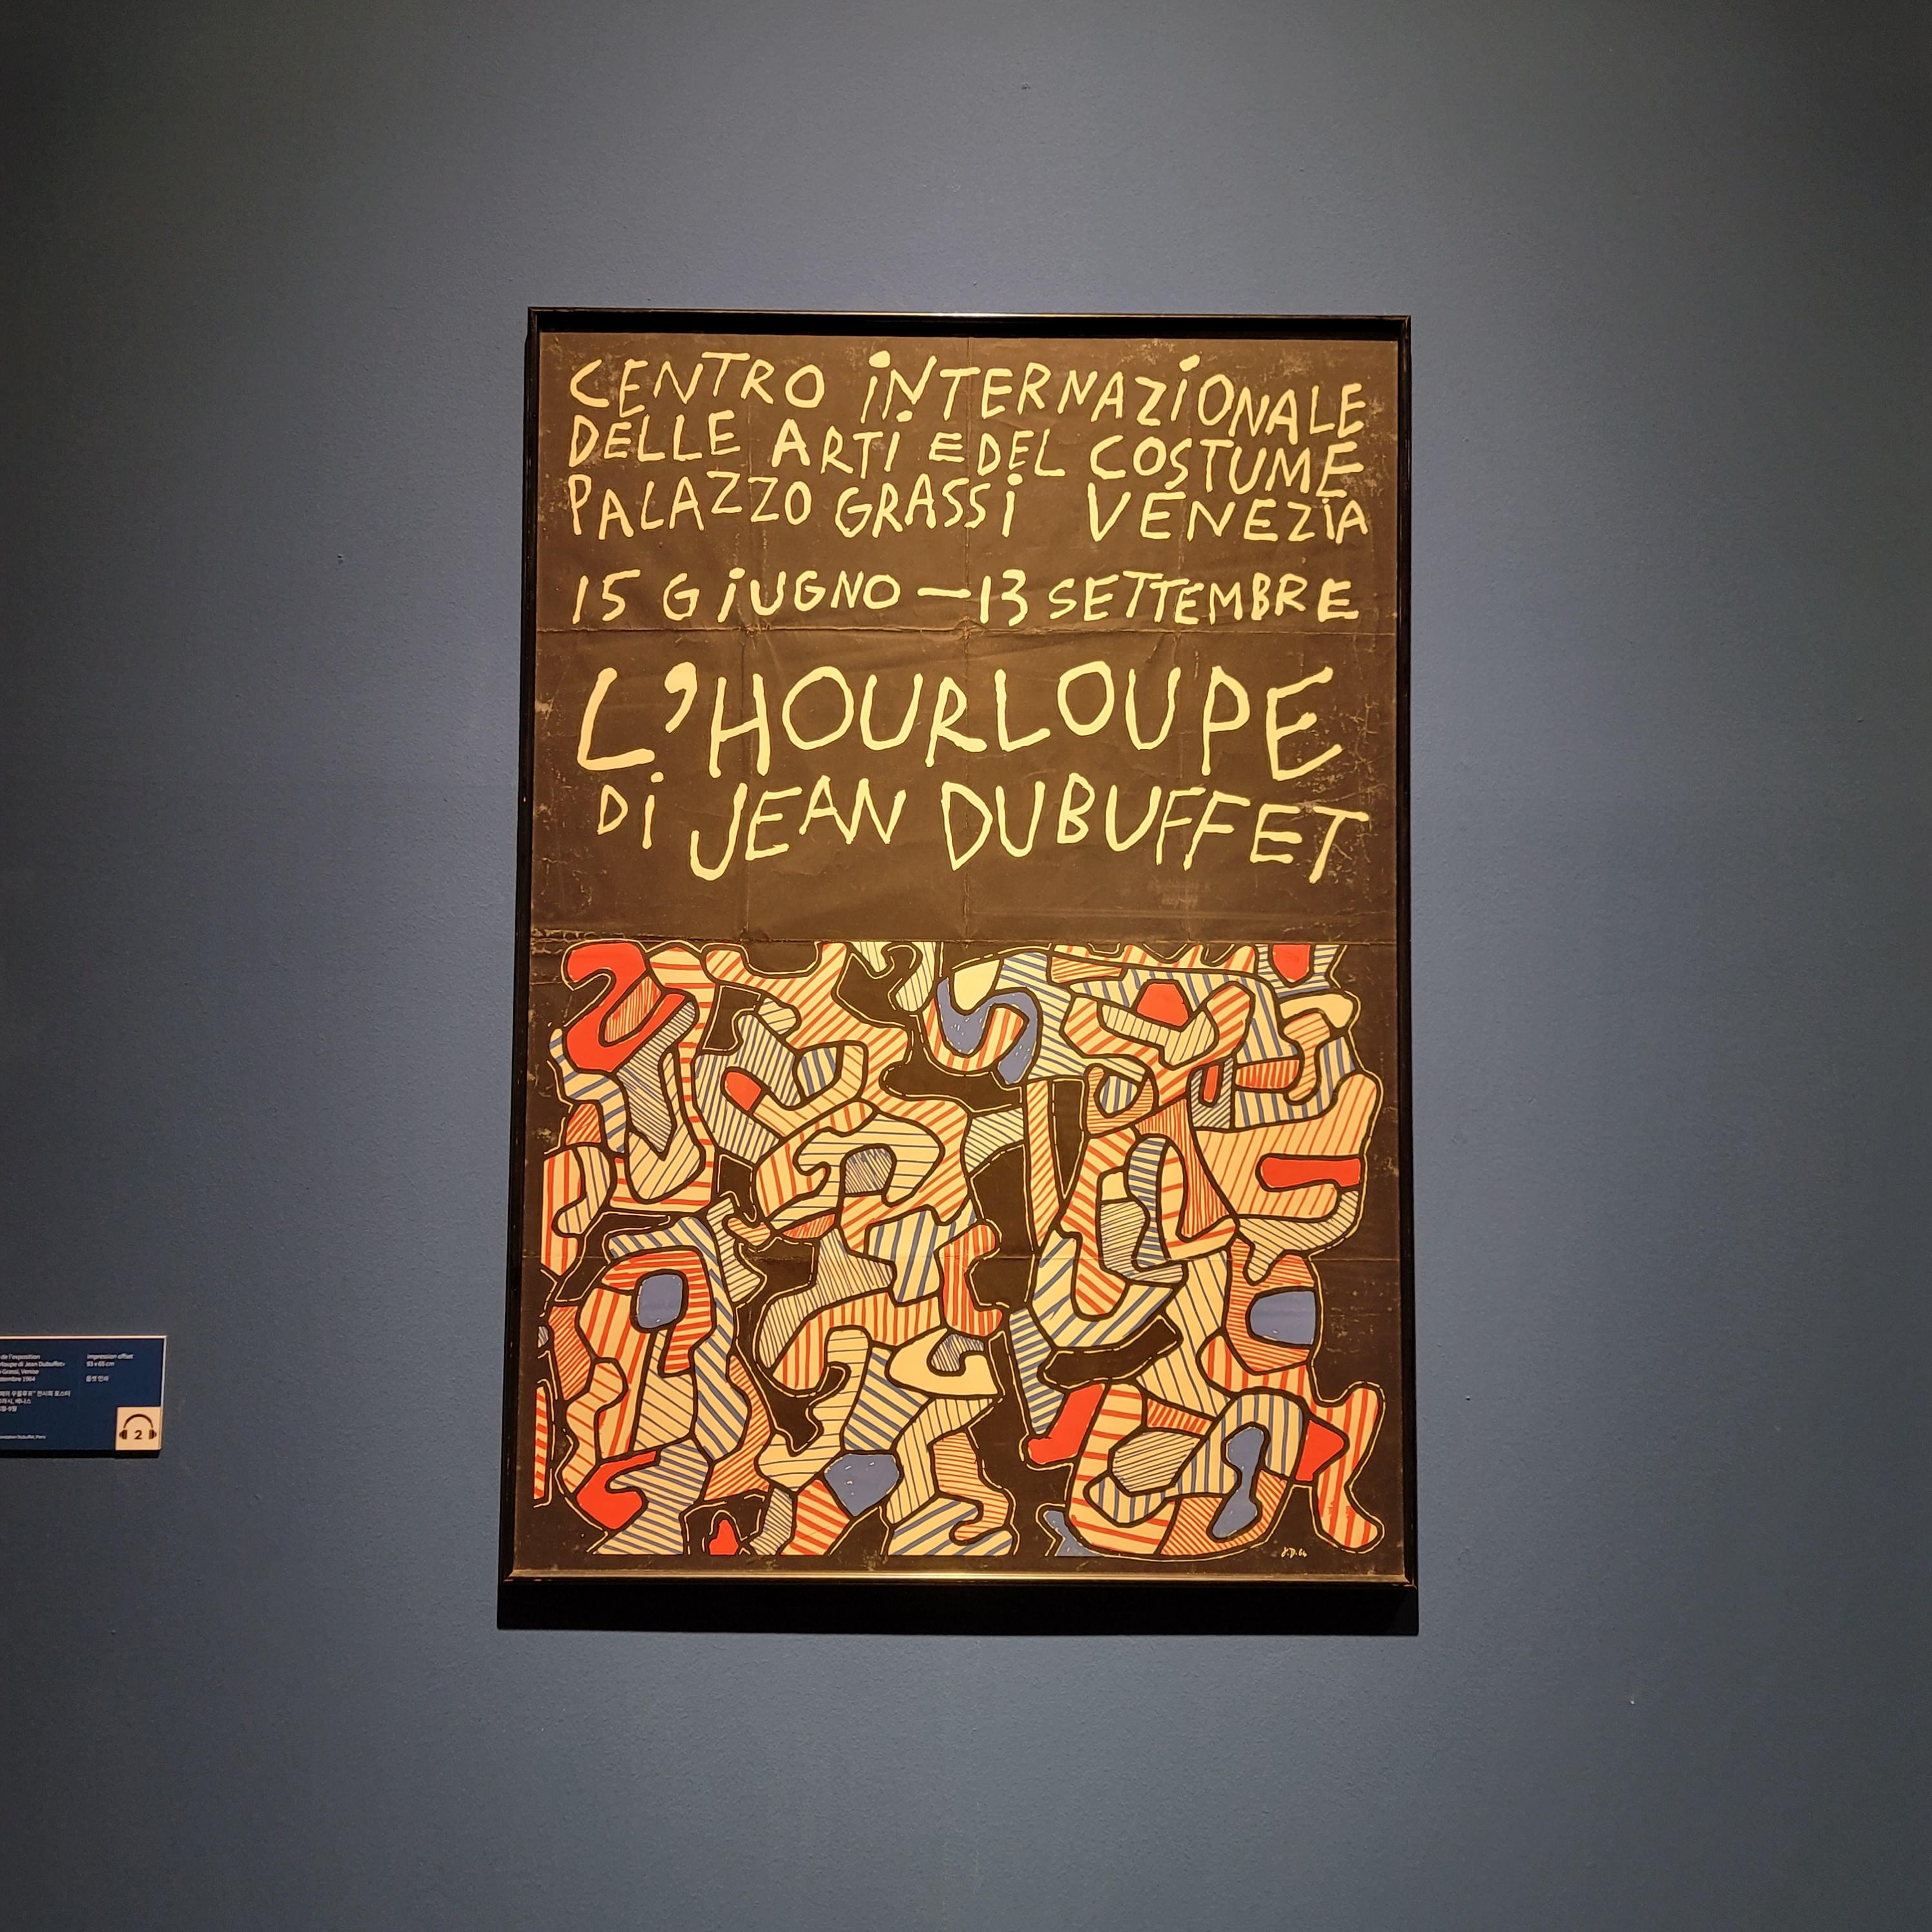 CENTRO iNTERNAZiONALE
DELLE ARTi E DEL COSTUME
PALAZZO GRASSi VENEZiA
15 GiUGNO — 13 SETTEMBRE
L'HOURLOUPE
Di JEAN DUBUFFET
J.D. 64
de l'exposition
di Jean Dubuffet»
Grassi, Venise
1964
impression offset
93 x 65 cm
옵셋 인쇄
전시회 포스터
베니스
Dubuffet, Paris
2